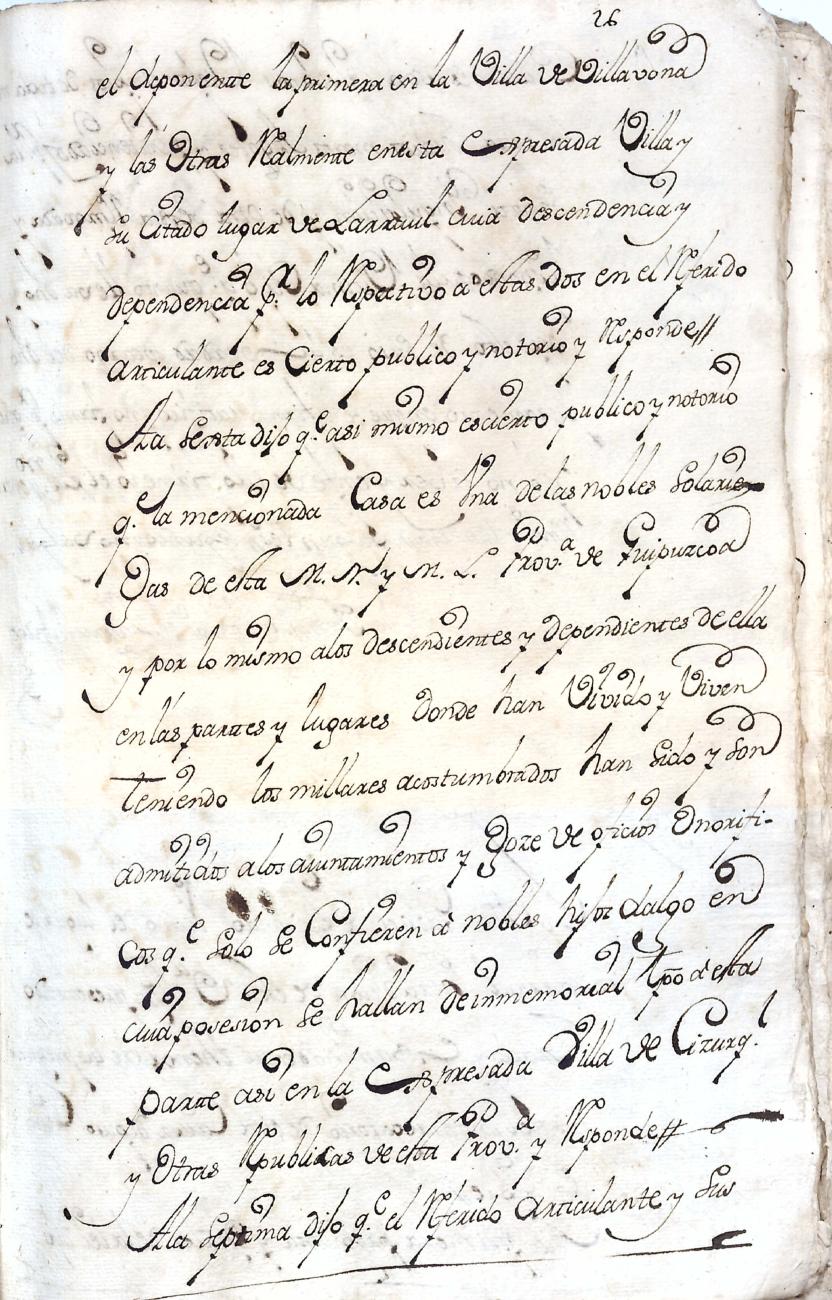 26
el deponente la primera en la Villa de Villavona
y las Otras Realmente en esta Espresada Villa y
su Citado lugar de Larraul cuia descendencia y
dependencia pr. lo Respectivo a estas dos en el Referido
articulante es Cierto publico y notorio y Responde //
Ala Sesta dijo q.e asi mismo es cierto publico y notorio
q.e la mencionada Casa es Una de las nobles Solarie-
gas de esta M. N. y M. L. Prov.a de Guipuzcoa
y por lo mismo alos descendientes y dependientes de ella
en las partes y lugares donde han Vivido y Viven
teniendo los millares acostumbrados han Sido y Son
admitidos alos aiuntamientos y Goze de oficios Onorifi-
cos q.e solo se Confieren a nobles hijos dalgo en
cuia posesion se hallan de inmemorial tpo a esta
parte asi en la Espresada Villa de Cizurq.l
y Otras Republicas de esta Prov.a y Responde //
Ala Septima dijo q.e el Referido Articulante y Sus